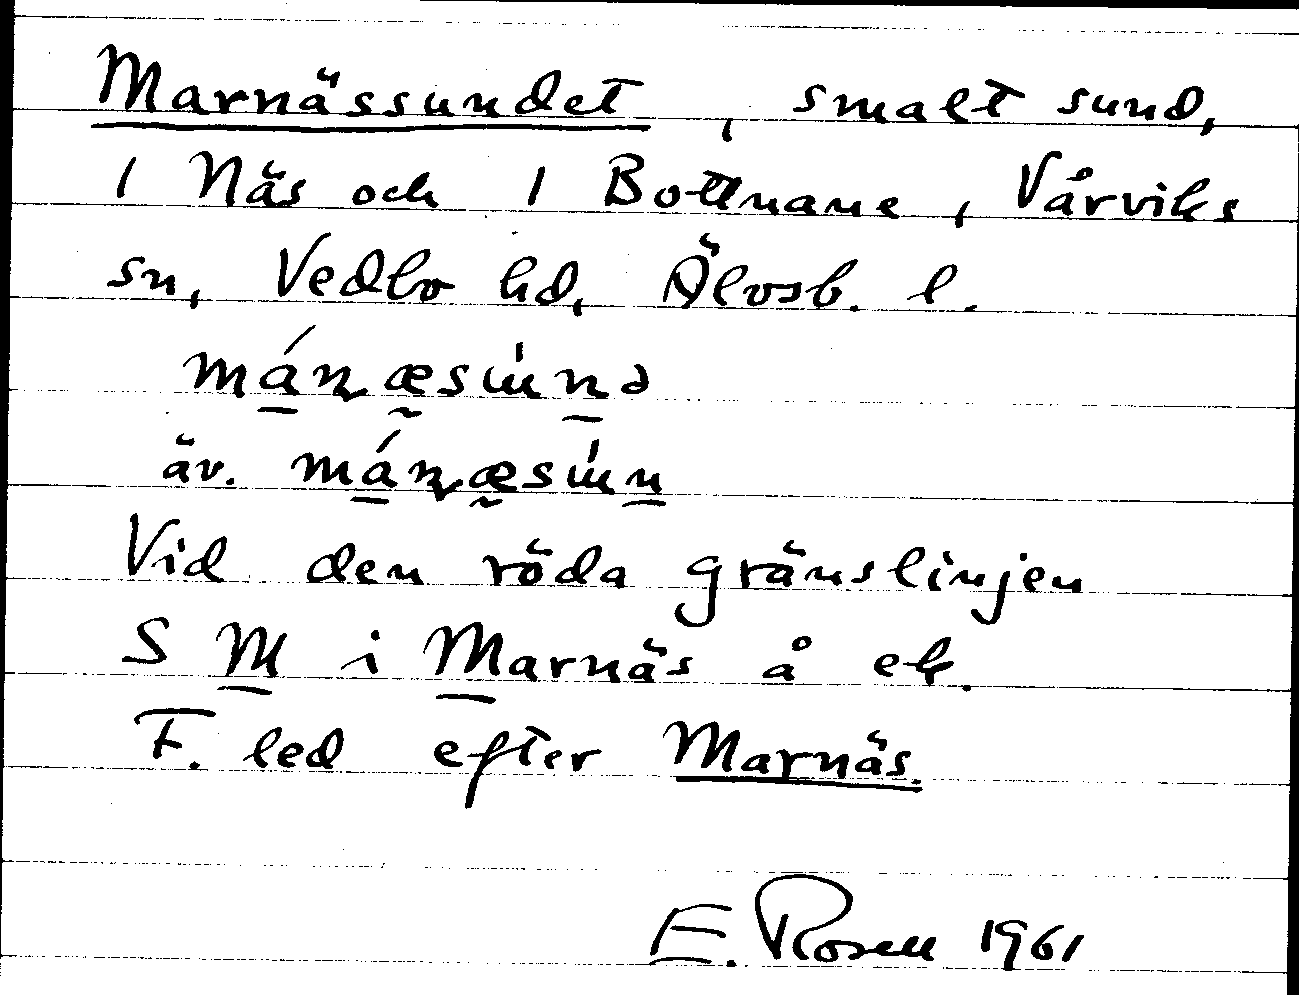 Marnässundet, smalt sund,
1 Näs och 1 Bottnane, Vårviks
sn, Vedbo hd, Älvsb. l.
máɳæsùnə
äv. máɳæsùn
Vid den röda gränslinjen
S M i Marnäs å ek.
F. led efter Marnäs.
E. Rosell 1961